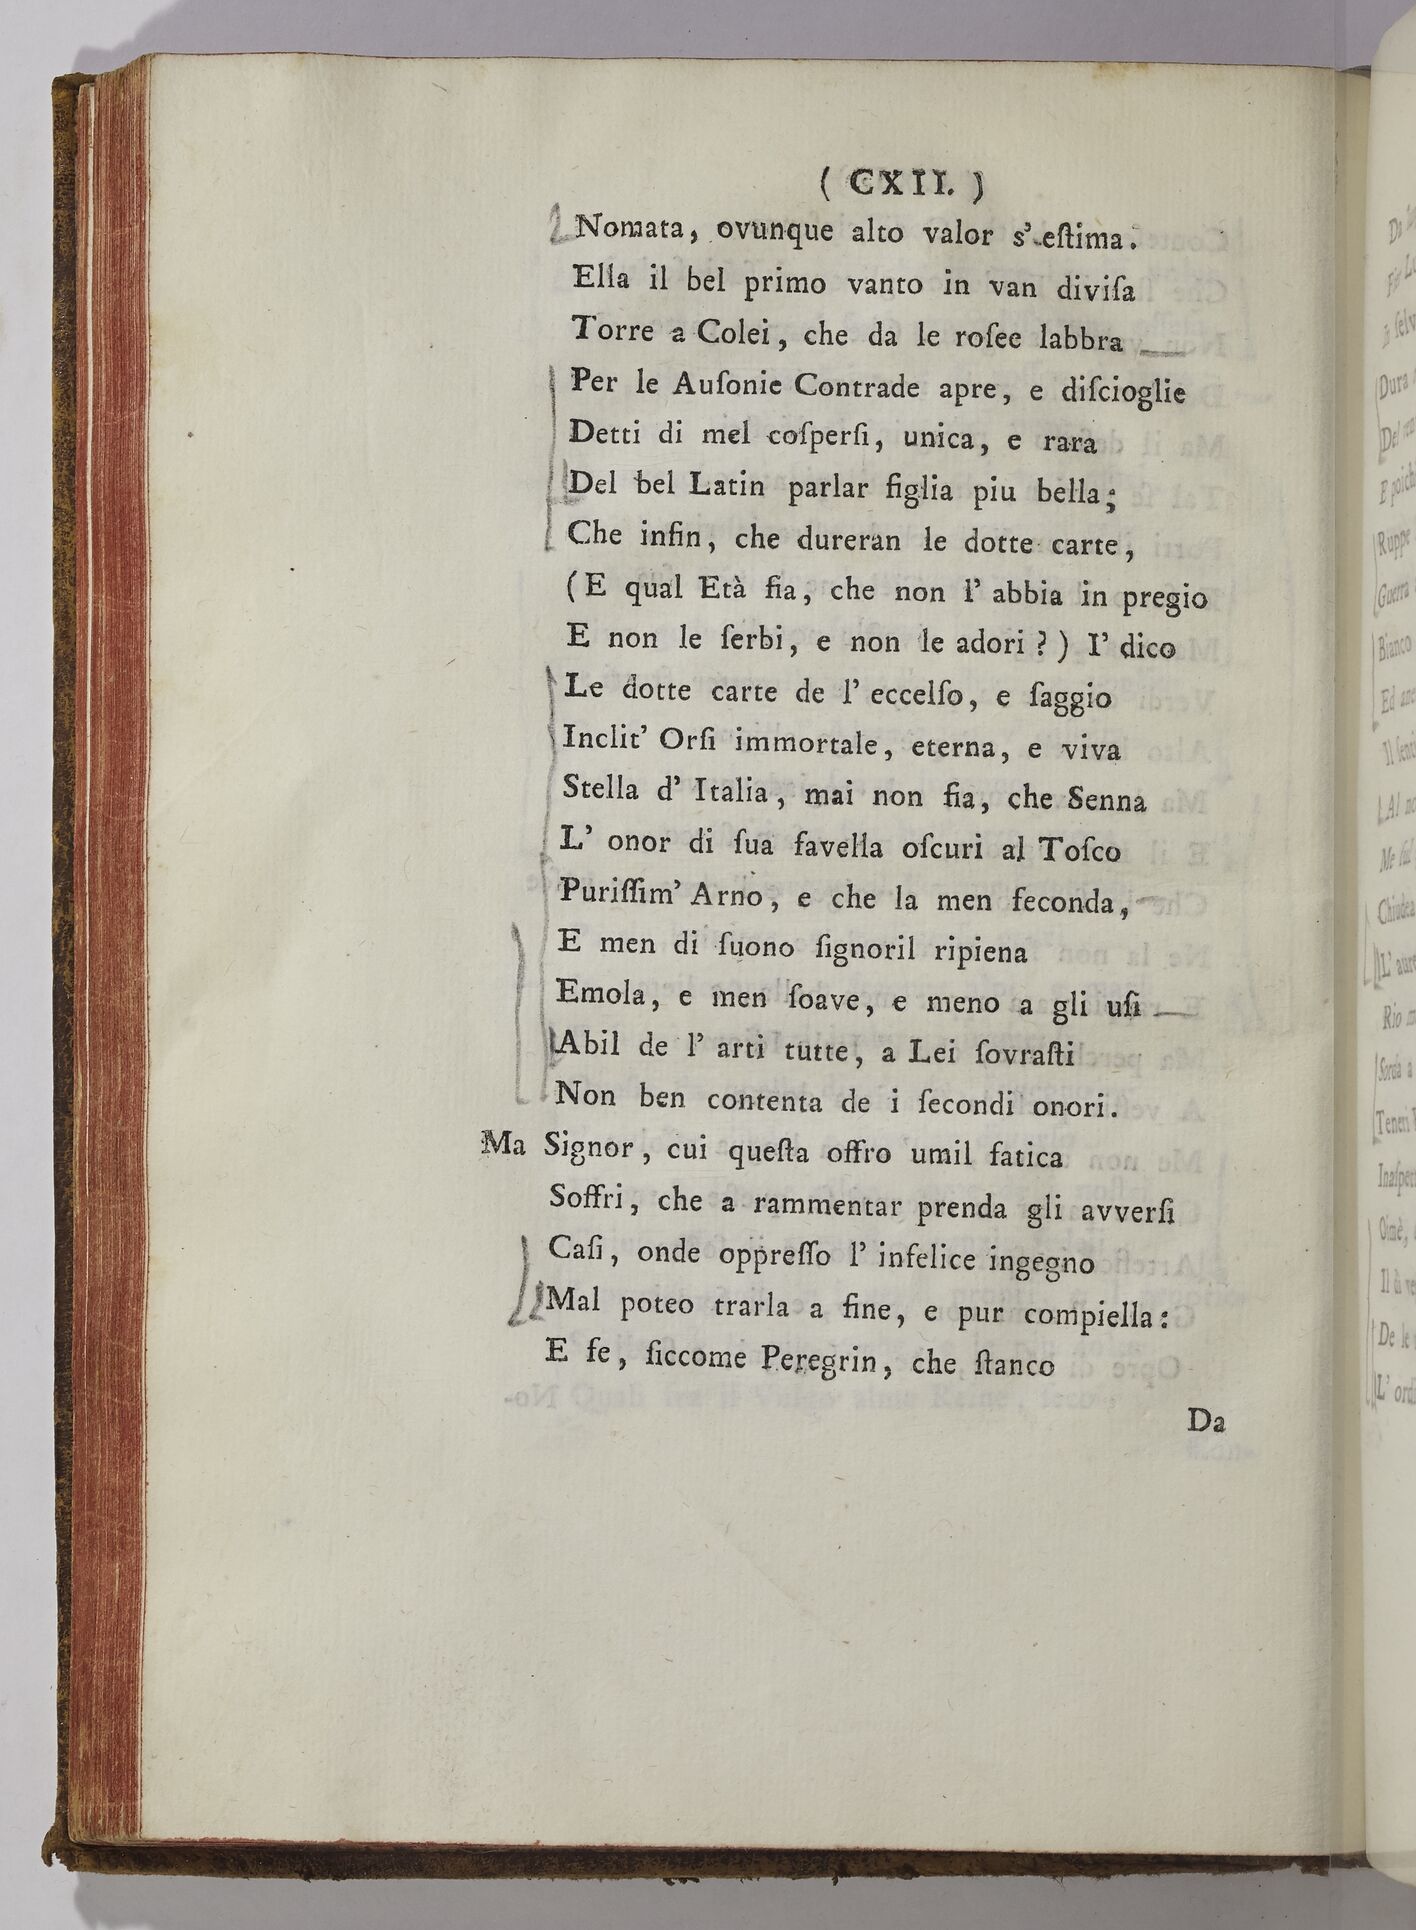 ( CXII. )
Nomata, ovunque alto valor s' eſtima.
Ella il bel primo vanto in van diviſa
Torre a Colei, che da le roſee labbra
Per le Auſonie Contrade apre, e diſcioglie
Detti di mel coſperſi, unica, e rara
Del bel Latin parlar figlia piu bella;
Che infin, che dureran le dotte carte,
(E qual Età fia, che non l' abbia in pregio
E non le ſerbi, e non le adori?) I' dico
Le dotte carte de l' eccelſo, e ſaggio
Inclit' Orſi immortale, eterna, e viva
Stella d' Italia, mai non fia, che Senna
L' onor di ſua favella oſcuri al Toſco
Puriſſim' Arno, e che la men feconda,
E men di ſuono ſignoril ripiena
Emola, e men ſoave, e meno a gli uſi
Abil de l' arti tutte, a Lei ſovraſti
Non ben contenta de i ſecondi onori.
Ma Signor, cui queſta offro umil fatica
Soffri, che a rammentar prenda gli avverſi
Caſi, onde oppreſſo l' infelice ingegno
Mal poteo trarla a fine, e pur compiella:
E fe, ſiccome Peregrin, che ſtanco
Da
Dura
Ruppe
Guerra
Bianco
Teneri
De le